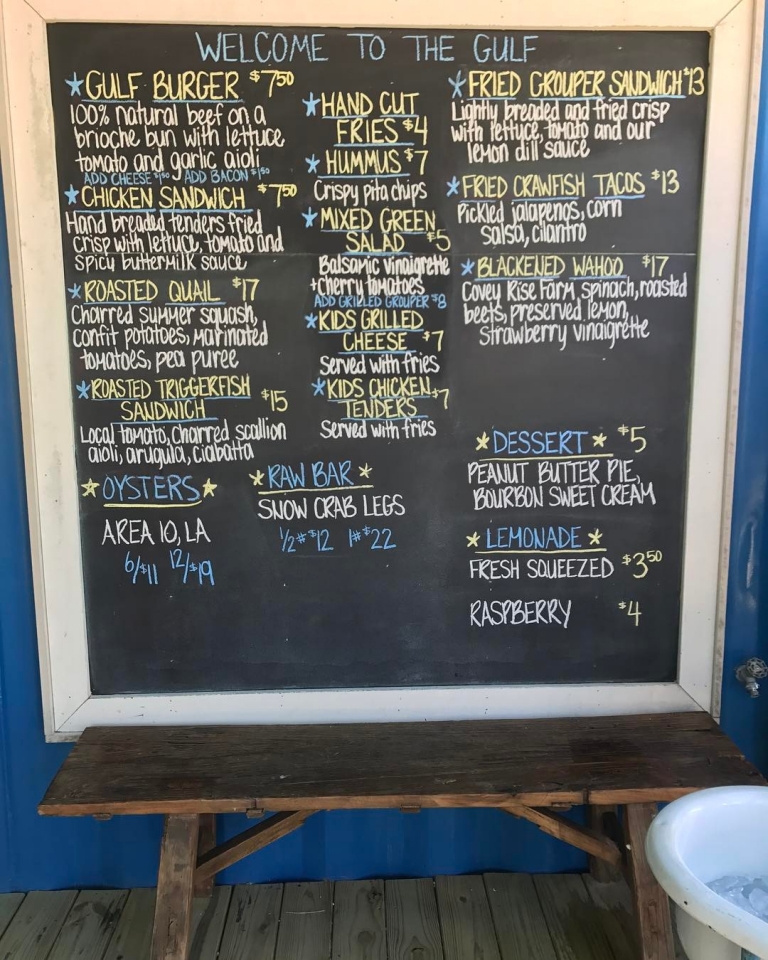 WELCOME TO THE GULF
*GULF BURGER $7 50
100% natural beef on a
brioche bun with lettuce
tomato and garlic aioli
ADD CHEESE $1 50 ADD BACON $1 50
*CHICKEN SANDWICH $7 50
Hand breaded tenders fried
crisp with lettuce, tomato and
spicy buttermilk sauce
*ROASTED QUAIL $17
Charred summer squash,
confit potatoes, marinated
tomatoes, pea puree
*ROASTED TRIGGERFISH
SANDWICH $15
Local tomato, charred scallion
aioli, arugula, ciabatta
*OYSTERS*
AREA 10, LA
6/$11 12/$19
*HAND CUT
FRIES $4
*HUMMUS $7
Crispy pita chips
*MIXED GREEN
SALAD $5
Balsamic vinaigrette
+cherry tomatoes
ADD GRILLED GROUPER $8
*KIDS GRILLED
CHEESE $7
Served with fries
*KIDS CHICKEN
TENDERS $7
Served with fries
*RAW BAR*
SNOW CRAB LEGS
1/2# $12 1# $22
*FRIED GROUPER SANDWICH $13
Lightly breaded and fried crisp
with lettuce, tomato and our
lemon dill sauce
*FRIED CRAWFISH TACOS $13
Pickled jalapenos, corn
salsa, cilantro
*BLACKENED WAHOO $17
Covey Rise Farm spinach, roasted
beets, preserved lemon,
strawberry vinaigrette
*DESSERT* $5
PEANUT BUTTER PIE,
BOURBON SWEET CREAM
*LEMONADE*
FRESH SQUEEZED $3 50
RASPBERRY $4